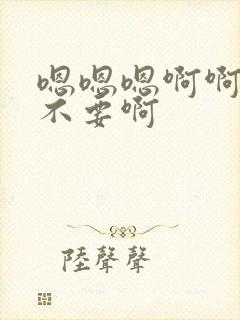 嗯嗯嗯啊啊
不要啊
陸聲聲